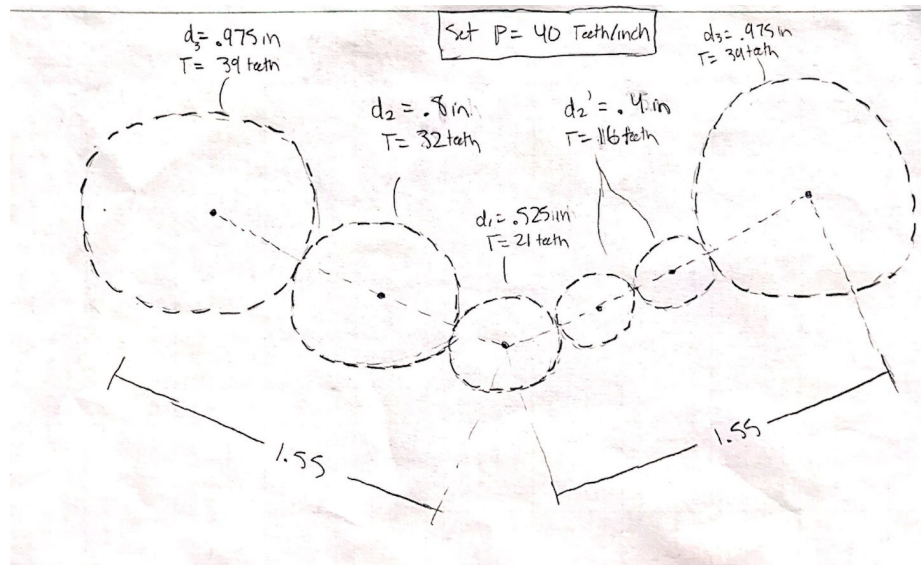 d₃ = .975 in
T = 39 teeth
Set P = 40 Teeth/inch
d₃ = .975 in
T = 39 teeth
d₂ = .8 in
T = 32 teeth
d₂' = .4 in
T = 16 teeth
d₁ = .525 in
T = 21 teeth
1.55
1.55